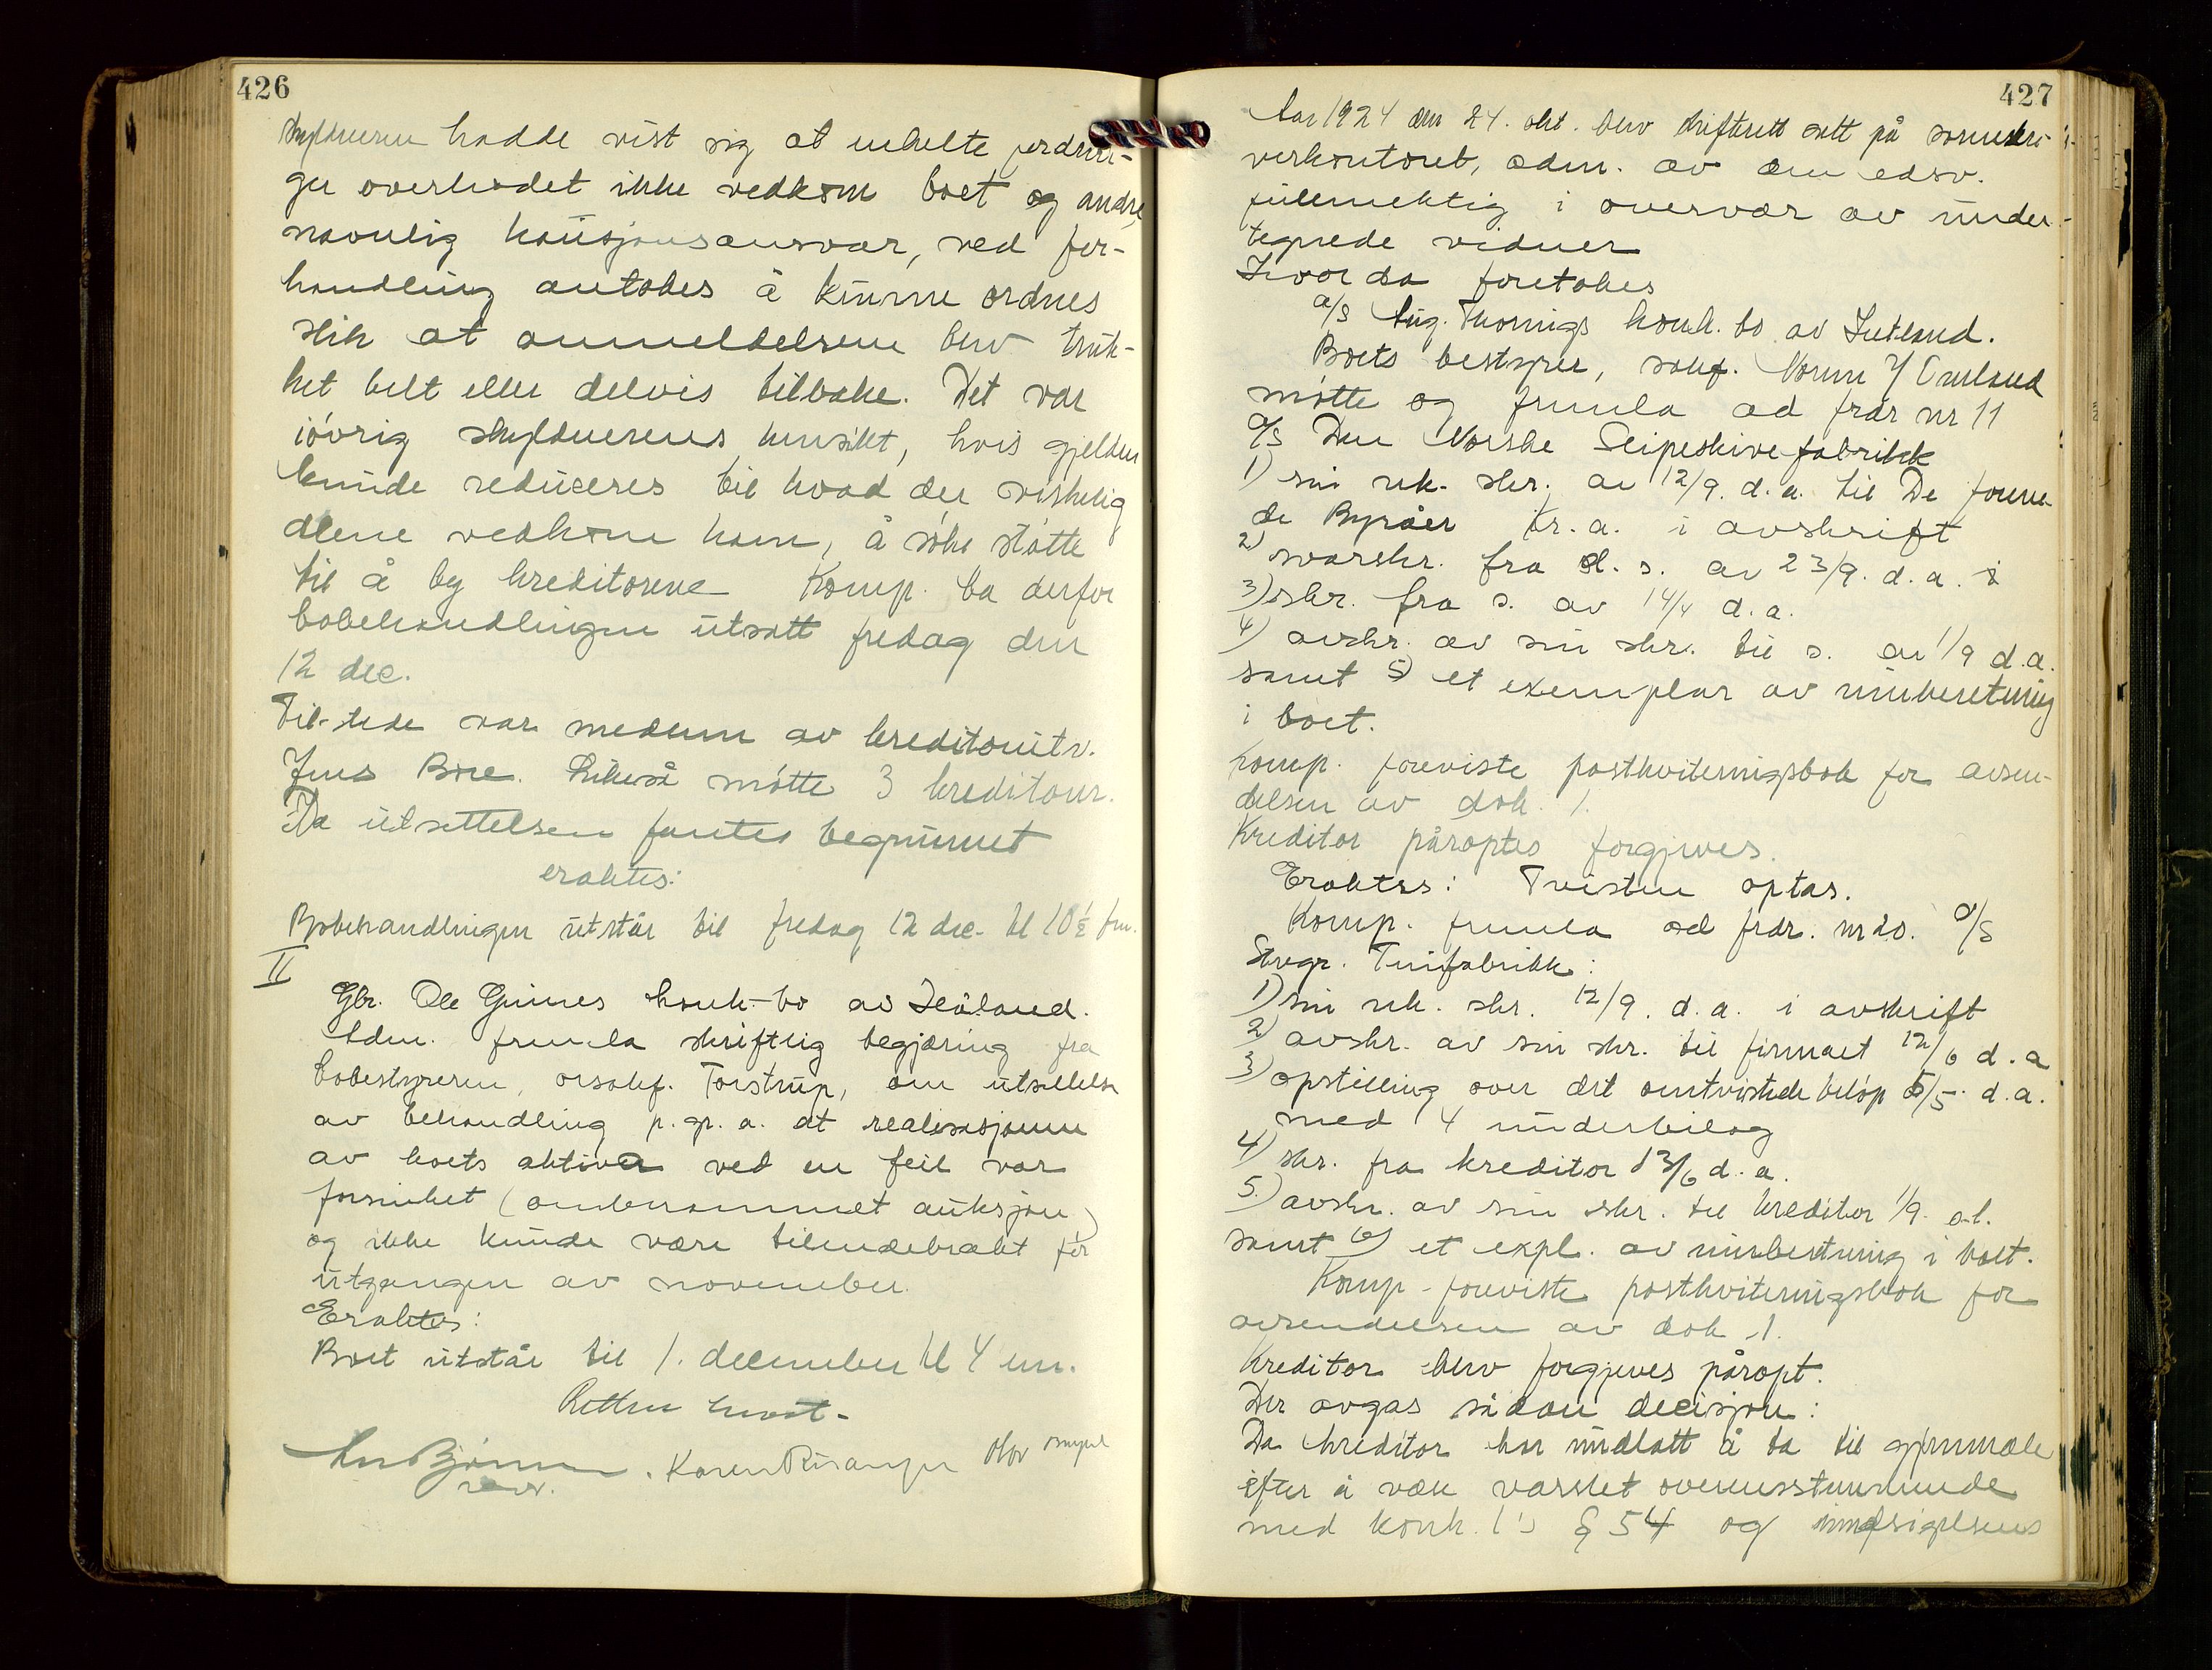 426
skyldneren hadde vist sig at enkelte fordrin-
ger overhodet ikke vedkom boet og andre,
navnlig kausjonsansvar, ved for-
handling antokes å kunne ordnes
slik at anmeldelsene blev truk-
ket helt eller delvis tilbake. Det var
iøvrig skyldnerens hensikt, hvis gjelden
kunde reduceres til hvad der virkelig
alene vedkom ham, å søke støtte
til å by kreditorene Komp. ba derfor
bobehandlingen utsatt fredag den
12 dec.
Tilstede var medlem av kreditorutv.
Jens Boe. Likeså møtte 3 kreditorer.
Da utsettelsen fantes begrunnet
eraktes:
Bobehandlingen utstår til fredag 12 dec. kl 10½ fm.
II
Gbr. Ole Grimes konk.-bo av Hetland.
Adm. fremla skriftlig begjæring fra
bobestyreren, orsakf. Torstrup, om utsettelse
av behandling p. gr. a. at realisasjonen
av boets aktiva ved en feil var
forsinket (omberammet auksjon)
og ikke kunde være tilendebrakt før
utgangen av november.
Eraktes:
Boet utstår til 1. december kl 4 em.
Retten hevet.
Bjørnsen . Karen Risanger Olav
427
Aar 1924 den 24. okt. blev skifterett satt på sorenskri-
verkontoret, adm. av den edsv.
fullmektig i overvær av under-
tegnede vidner
Hvorda foretokes
a/s Aug. Thornigs konk. bo av Hetland.
Boets bestyrer, sakf.
møtte og fremla ad frdr nr 11
a/s Den Norske Slipeskivefabrikk
1) sin rek. skr. av 12/9. d.a. til De forene-
de Byråer Kr. a. i avskrift
2) svarskr. fra d. s. av 23/9. d. a.
3) skr. fra s. av 14/4 d. a.
4) avskr. av sin skr. til s. av 1/9 d.a.
samt 5) et exemplar av innberetning
i boet.
Komp. foreviste postkviteringsbok for avsen-
delsen av dok. 1.
Kreditor påroptes forgjeves.
Eraktes: Tvisten optas.
Komp. fremla ad frdr. nr 20. a/s
Stvgr. Tinfabrikk:
1) sin rek. skr. 12/9. d.a. i avskrift
2) avskr. av sin skr. til firmaet 12/6 d.a
3) opstilling over det omtvistede beløp 5/5. d.a.
med 4 underbilag
4) skr. fra kreditor 13/6 d.a.
5.) avskr. av sin skr. til kreditor 1/9. d.å.
samt 6) et expl. av innberetning i boet.
Komp. foreviste postkviteringsbok for
avsendelsen av dok. 1.
Kreditor blev forgjeves påropt.
Der avgas sådan decisjon:
Da kreditor har undlatt å ta til gjenmæle
efter å være varslet overensstemmende
med konk. l's § 54 og innsigelsens